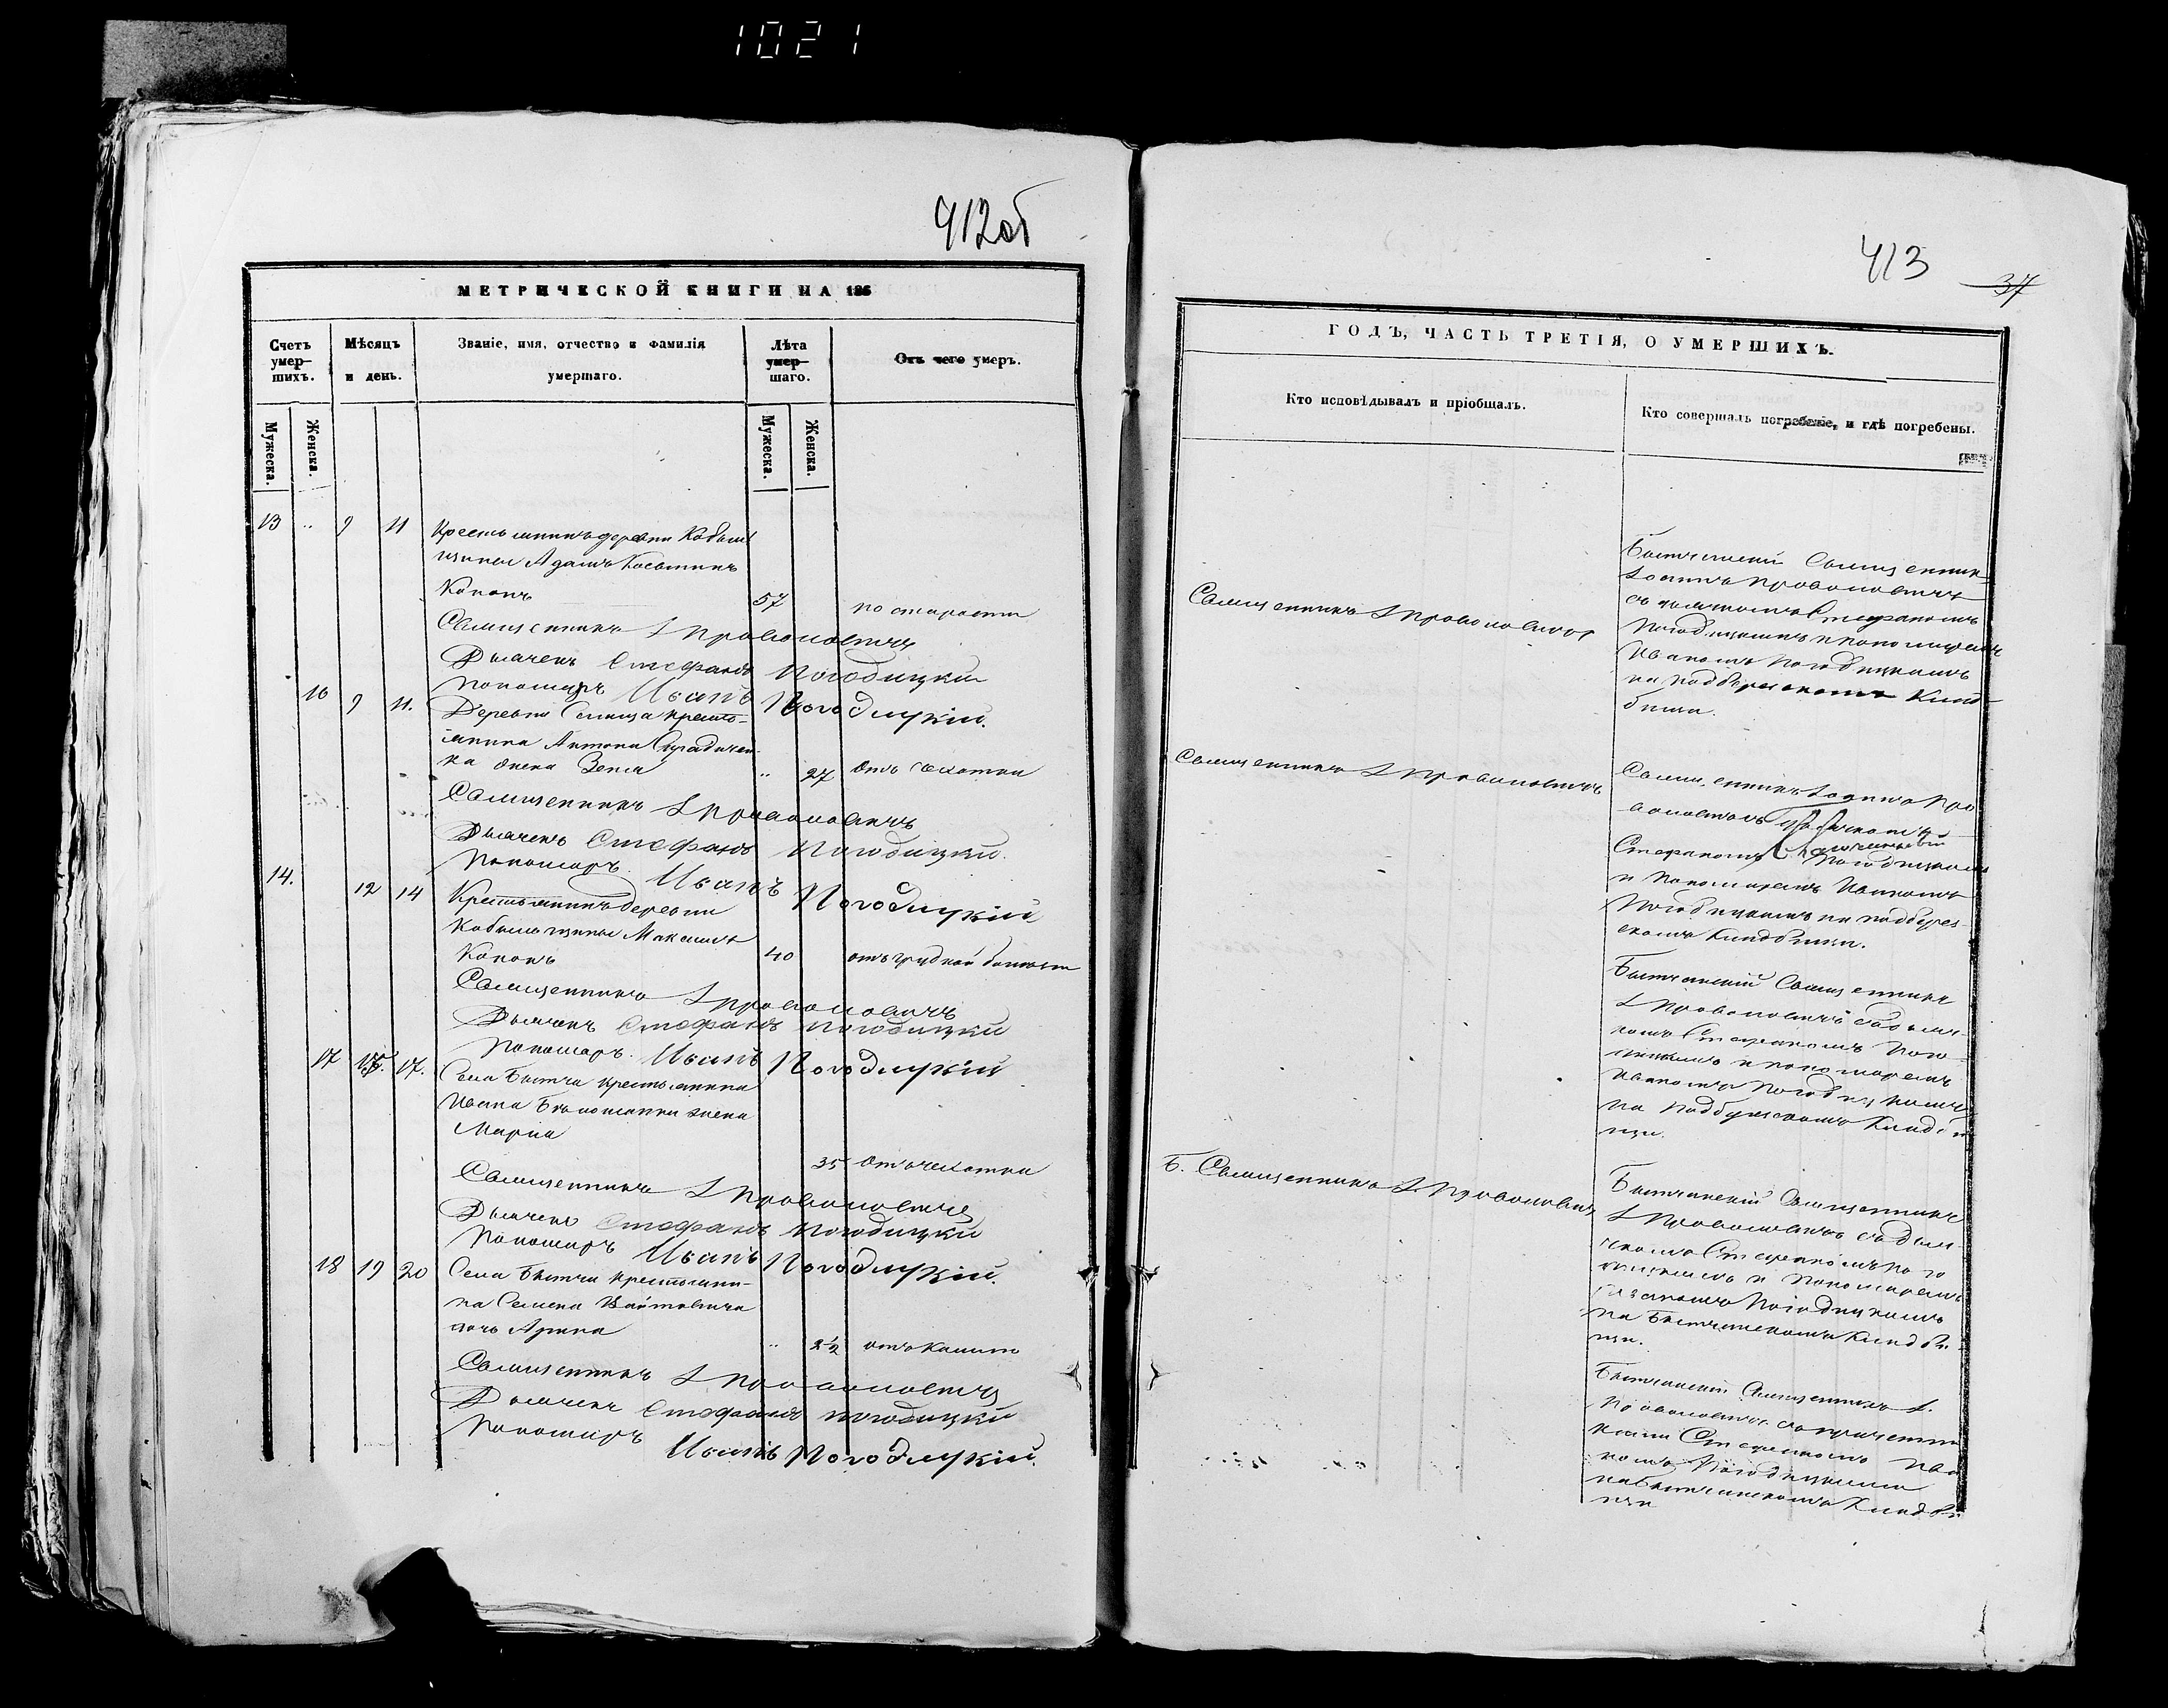 1021
412об
МЕТРИЧЕСКОЙ КНИГИ НА 186
Счетъ умер-шихъ.
Мѣсяцъ и день.
Званіе, имя, отчество и фамилія умершаго.
Лѣта умер-шаго.
Отъ чего умеръ.
Мужеска.
Женска.
Мужеска.
Женска.
13 „ 9 11 Крестьянинъ деревни Кобыль
щины Адамъ
Кононъ 57 по старости
Священникъ І Проволовичъ
Дьячекъ Стефанъ Погодицкій
Пономарь Иванъ Погодицкій.
16 9 11. Деревни Селища кресть-
янина Антона
жена 27 отъ чахотки
Священникъ І Проволовичъ
Дьячекъ Стефанъ Погодицкій.
Пономарь Иванъ Погодицкій
14. 12 14 Крестьянинъ деревни
Кобыльщины Максимъ
Кононъ 40 отъ грудной болезни
Священникъ І Проволовичъ
Дьячекъ Стефанъ Погодицкій
Пономарь. Иванъ Погодицкій
17 17. Села Бытча крестьянина
Ивана жена
Марія
35 отъ чахотки
Священникъ І Проволовичъ
Дьячекъ Стефанъ Погодицкій
Пономарь Иванъ Погодицкій.
18 19 20 Села Бытчи крестьяни-
на Семена Войтовича
дочь Арина
„ 2½ отъ кашлю
Священникъ І Проволовичъ
Дьячекъ Стефанъ Погодицкій
Пономарь
Иванъ Погодицкій.
413 37
ГОДЪ, ЧАСТЬ ТРЕТІЯ, О УМЕРШИХЪ.
Кто исповѣдывалъ и пріобщалъ.
Кто совершалъ погребеніе, и гдѣ погребены.
Священникъ І Проволовичъ
Бытчанскій Священник
Іоаннъ Проволовичъ
съ дьячкомъ Стефаномъ
Погодицкимъ и пономаремъ
Иваномъ Погодицкимъ
на Кладб
бищи.
Священникъ І Проволовичъ
Священникъ Іоаннъ Про
воловичъ
Стефаномъ Погодицкимъ
и Пономаремъ Иваномъ
Погодицкимъ на подберез-
скомъ Кладбищи.
Бытчанскій Священникъ
І Проволовичъ съ дьяч-
комъ Стефаномъ Пого-
дицкимъ и пономаремъ
Иваномъ Погодицкимъ
на Кладби
щи.
Б. Священникъ І. Проволовичъ
Бытчанскій Священникъ
І Проволовичъ съ дья-
чкомъ Стефаномъ Пого
дицкимъ и Пономаремъ
Иваномъ Погодицкимъ
на Бытчанскомъ Кладби-
щи.
Бытчанскій Священникъ І.
Проволовичъ съ причетни
ками Стефаномъ Ива
номъ Погодицкими
на Бытчанскомъ Кладби
щи